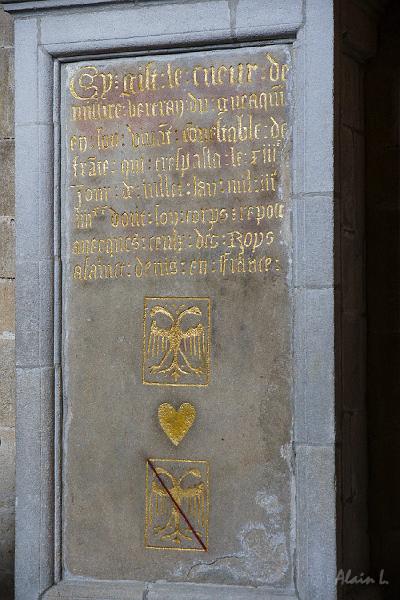 Cy : gist : le : cueur : de
missire : bertran : du : gueaqui
en : son : vivāt : conestable : de
frāce : qui : trespassa : le : xiiie
jour : de : jullet : lan : mil : iiie
iiiixx : dont : son : corps : repose
avecques : ceulx : des : Roys
a sainct : denis : en : france :
Alain L.